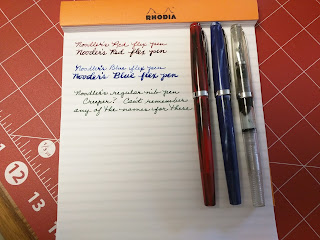 RHODIA
Noodler's Red flex pen
Nooder's Red flex pen
Noodler's Blue flex pen
Nooder's Blue flex pen
Noodler's regular nib pen
Creaper? Can't remember
any of the names for these
12
13
14
15